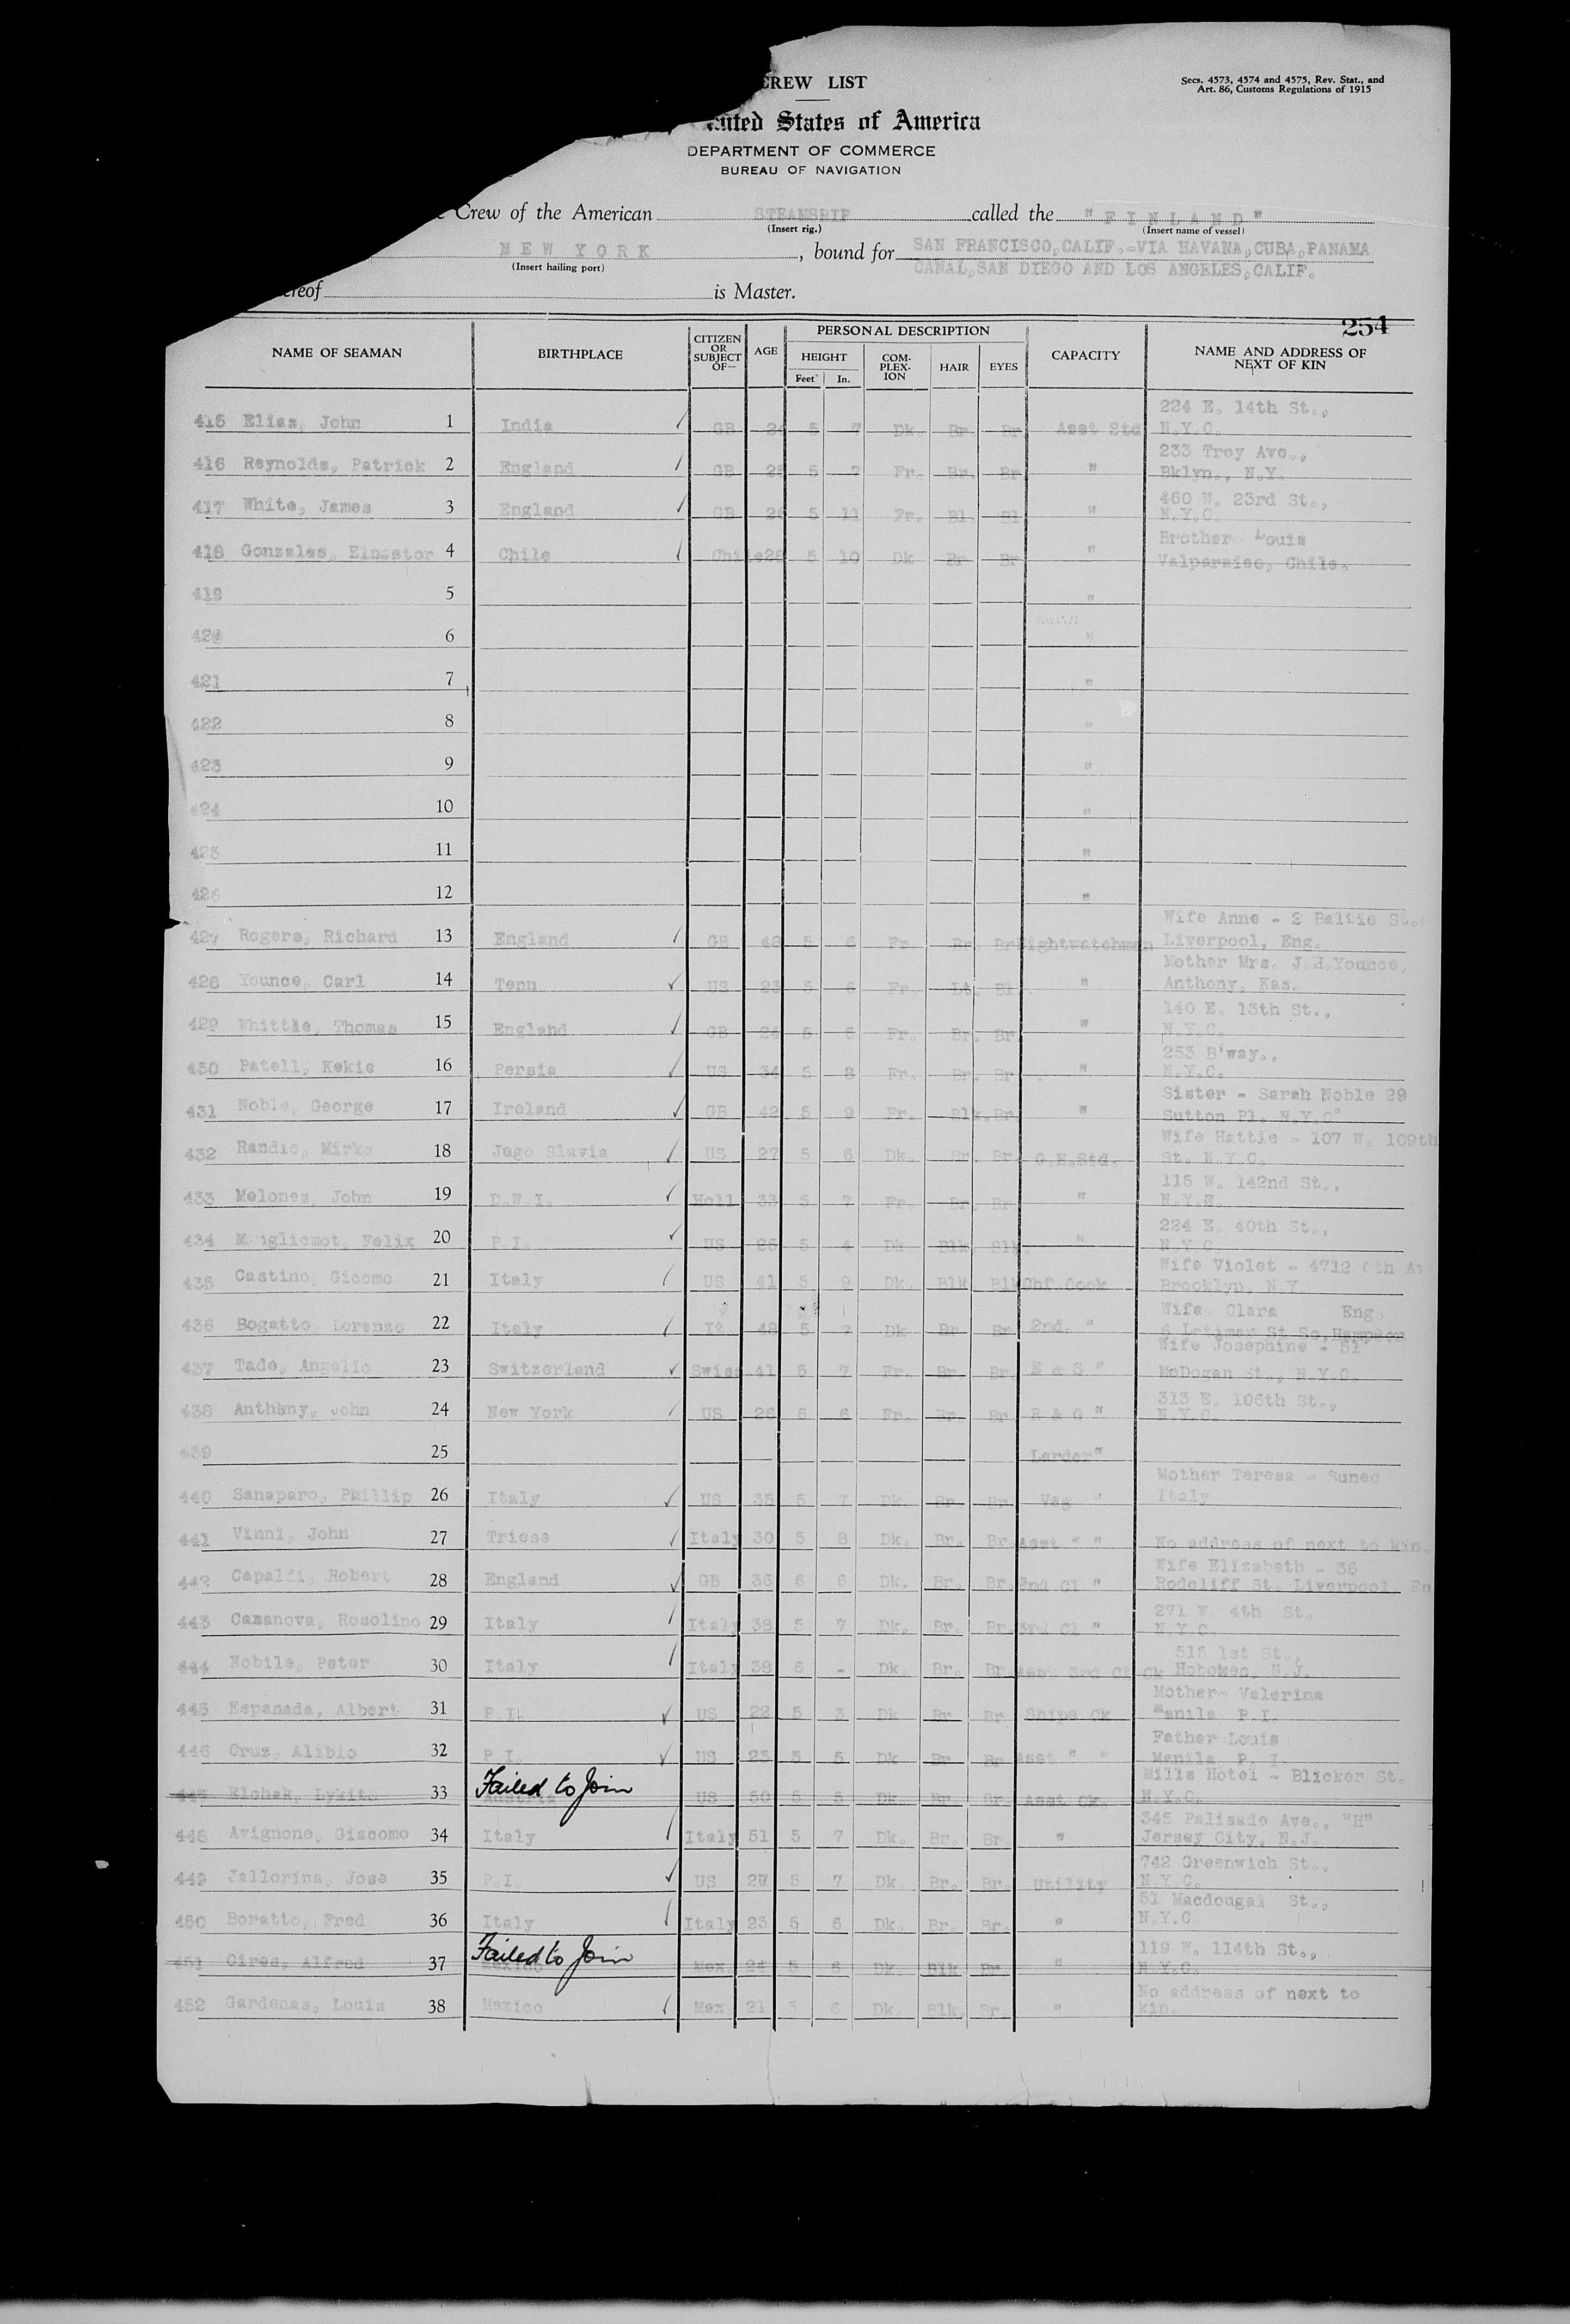 CREW LIST
Secs. 4573, 4574 and 4575, Rev. Stat., and
Art. 86, Customs Regulations of 1915
United States of America
DEPARTMENT OF COMMERCE
BUREAU OF NAVIGATION
Crew of the American STEAMSHIP called the "FINLAND"
(Insert rig.) (Insert name of vessel)
NEW YORK, bound for SAN FRANCISCO, CALIF.-VIA HAVANA, CUBA, PANAMA
(Insert hailing port) CANAL, SAN DIEGO AND LOS ANGELES, CALIF.
ereof is Master.
254
NAME OF SEAMAN BIRTHPLACE CITIZEN OR SUBJECT OF— AGE PERSONAL DESCRIPTION CAPACITY NAME AND ADDRESS OF NEXT OF KIN
HEIGHT COM-PLEX-ION HAIR EYES
Feet In.
224 E. 14th St.,
415 Elias, John 1 India GB 24 5 7 Dk. Br. Br Asst Std N.Y.C.
233 Troy Ave.,
416 Reynolds, Patrick 2 England GB 28 5 7 Fr. Br. Br " Bklyn., N.Y.
460 W. 23rd St.,
417 White, James 3 England GB 26 5 11 Fr. Bl. Bl " N.Y.C.
Brother Louis
418 Gonzales, Elnestor 4 Chile Chile 28 5 10 Dk Br Br " Valparaiso, Chile.
419 5 "
420 6 "
421 7 "
422 8 "
423 9 "
424 10 "
425 11 "
426 12 "
Wife Anne - 2 Baltic St.
427 Rogers, Richard 13 England GB 48 5 6 Fr. Br. Br Nightwatchman Liverpool, Eng.
Mother Mrs. J.H.Younce,
428 Younce, Carl 14 Tenn US 23 5 6 Fr. Lt. Bl. " Anthony, Kas.
140 E. 13th St.,
429 Whittle, Thomas 15 England GB 24 5 6 Fr. Br. Br. " N.Y.C.
253 B'way.,
430 Patell, Kekie 16 Persia US 34 5 8 Fr. Br. Br. " N.Y.C.
Sister - Sarah Noble 29
431 Noble, George 17 Ireland GB 42 5 9 Fr. Blk. Br. " Sutton Pl. N.Y.C.
Wife Hattie - 107 W. 109th
432 Randic, Mirko 18 Jego Slavia US 27 5 6 Dk. Br. Br. G.H.Std. St. N.Y.C.
115 W. 142nd St.,
433 Melones, John 19 D.W.I. Holl 33 5 7 Fr. Br. Br. " N.Y.E.
224 E. 40th St.,
434 Felix 20 P.I. US 25 5 4 Dk. Blk. Blk. " N.Y.C.
Wife Violet - 4712 6th Av
435 Castino, Gicomo 21 Italy US 41 5 9 Dk. Blk. Blk Chf.Cook Brooklyn, N.Y.
Wife Clara Eng.
436 Bogatto, Lorenzo 22 Italy It. 48 5 7 Dk Br Br 2nd. " 6 Latimar St So.Hampton
Wife Josephine - 51
437 Tade, Angelic 23 Switzerland Swiss 41 5 7 Fr. Br. Br. E & S " McDogan St., N.Y.C.
313 E. 106th St.,
438 Anthony, John 24 New York US 26 6 6 Fr. Br. Br. R & G " N.Y.C.
439 25 Larder "
Mother Teresa - Suneo
440 Sanaparo, Phillip 26 Italy US 35 5 7 Dk. Br. Br. Veg " Italy
441 Vinni, John 27 Triese Italy 30 5 8 Dk. Br. Br. Asst " " No address of next to kin.
Wife Elizabeth - 36
442 Capaldi, Robert 28 England GB 36 6 6 Dk. Br. Br. 2nd Cl " Rodcliff St. Liverpool, En
271 W. 4th St.
443 Casanova, Rosolino 29 Italy Italy 38 5 7 Dk. Br. Br. 3rd Cl " N.Y.C.
515 1st St.,
444 Nobile, Peter 30 Italy Italy 38 6 - Dk. Br. Br. Asst 3rd Cl Ck Hoboken, N.J.
Mother- Valerina
445 Espanada, Albert 31 P.I. US 22 5 3 Dk Br Br Ships Ck Manila P.I.
Father Louis
446 Cruz, Alibio 32 P.I. US 25 5 5 Dk Br Br Asst " " Manila, P. I.
Failed to Join Mills Hotel - Blicker St.
447 Elchak, Lykito 33 Austria US 50 5 5 Dk. Br. Br. Asst Ck. N.Y.C.
345 Palisade Ave., "H"
448 Avignone, Giacomo 34 Italy Italy 51 5 7 Dk. Br. Br. " Jersey City, N.J.
742 Greenwich St.,
449 Jallorina, Jose 35 P.I. US 27 5 7 Dk. Br. Br. Utility N.Y.C.
51 Macdougal St.,
450 Boratto, Fred 36 Italy Italy 23 5 6 Dk. Br. Br. " N.Y.C
Failed to Join 119 W. 114th St.,
451 Cires, Alfred 37 Mexico Mex 24 5 6 Dk. Blk Br " N.Y.C.
No address of next to
452 Gardenas, Louis 38 Mexico Mex 21 5 6 Dk. Blk. Br. " kin.